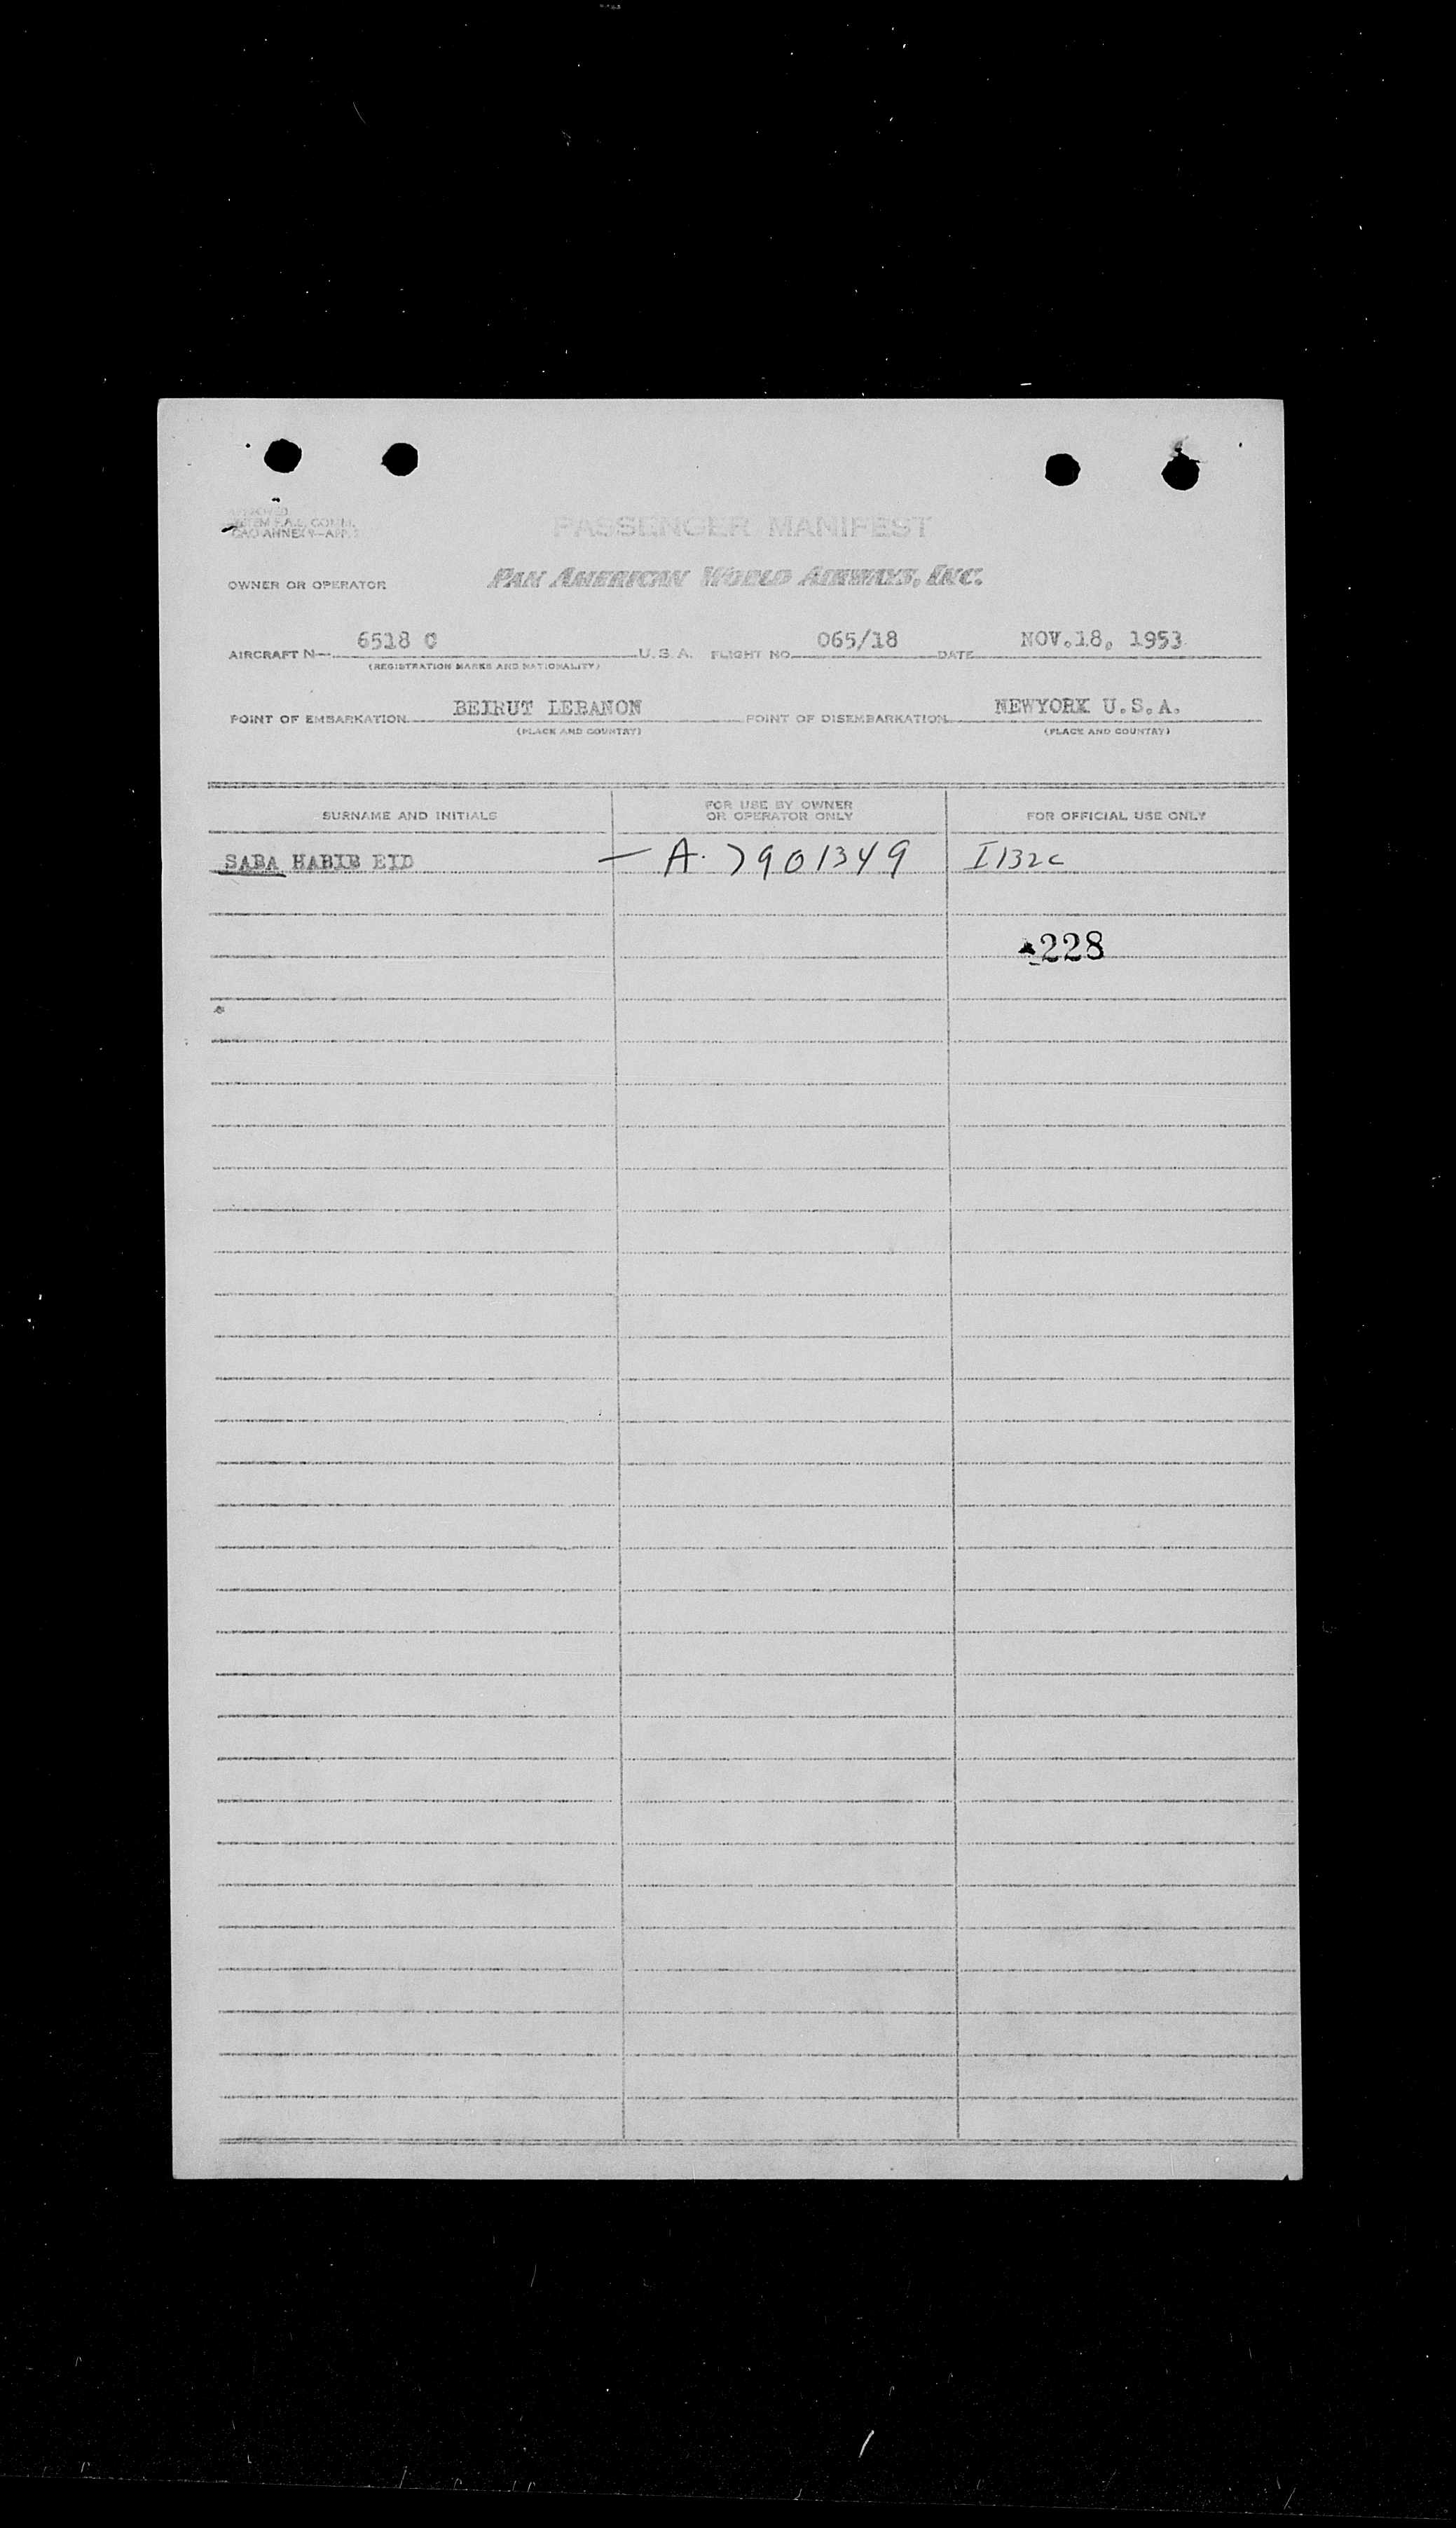 APPROVED
SYSTEM F.A.L. COMM.
ICAO ANNEX 9—APP. 2
PASSENGER MANIFEST
OWNER OR OPERATOR PAN AMERICAN WORLD AIRWAYS, INC.
AIRCRAFT N— 6518 C U.S.A. FLIGHT NO. 065/18 DATE NOV.18, 1953
(REGISTRATION MARKS AND NATIONALITY)
POINT OF EMBARKATION BEIRUT LEBANON POINT OF DISEMBARKATION NEWYORK U.S.A.
(PLACE AND COUNTRY) (PLACE AND COUNTRY)
SURNAME AND INITIALS FOR USE BY OWNER OR OPERATOR ONLY FOR OFFICIAL USE ONLY
SABA HABIB EID — A. 7901349 I132c
228